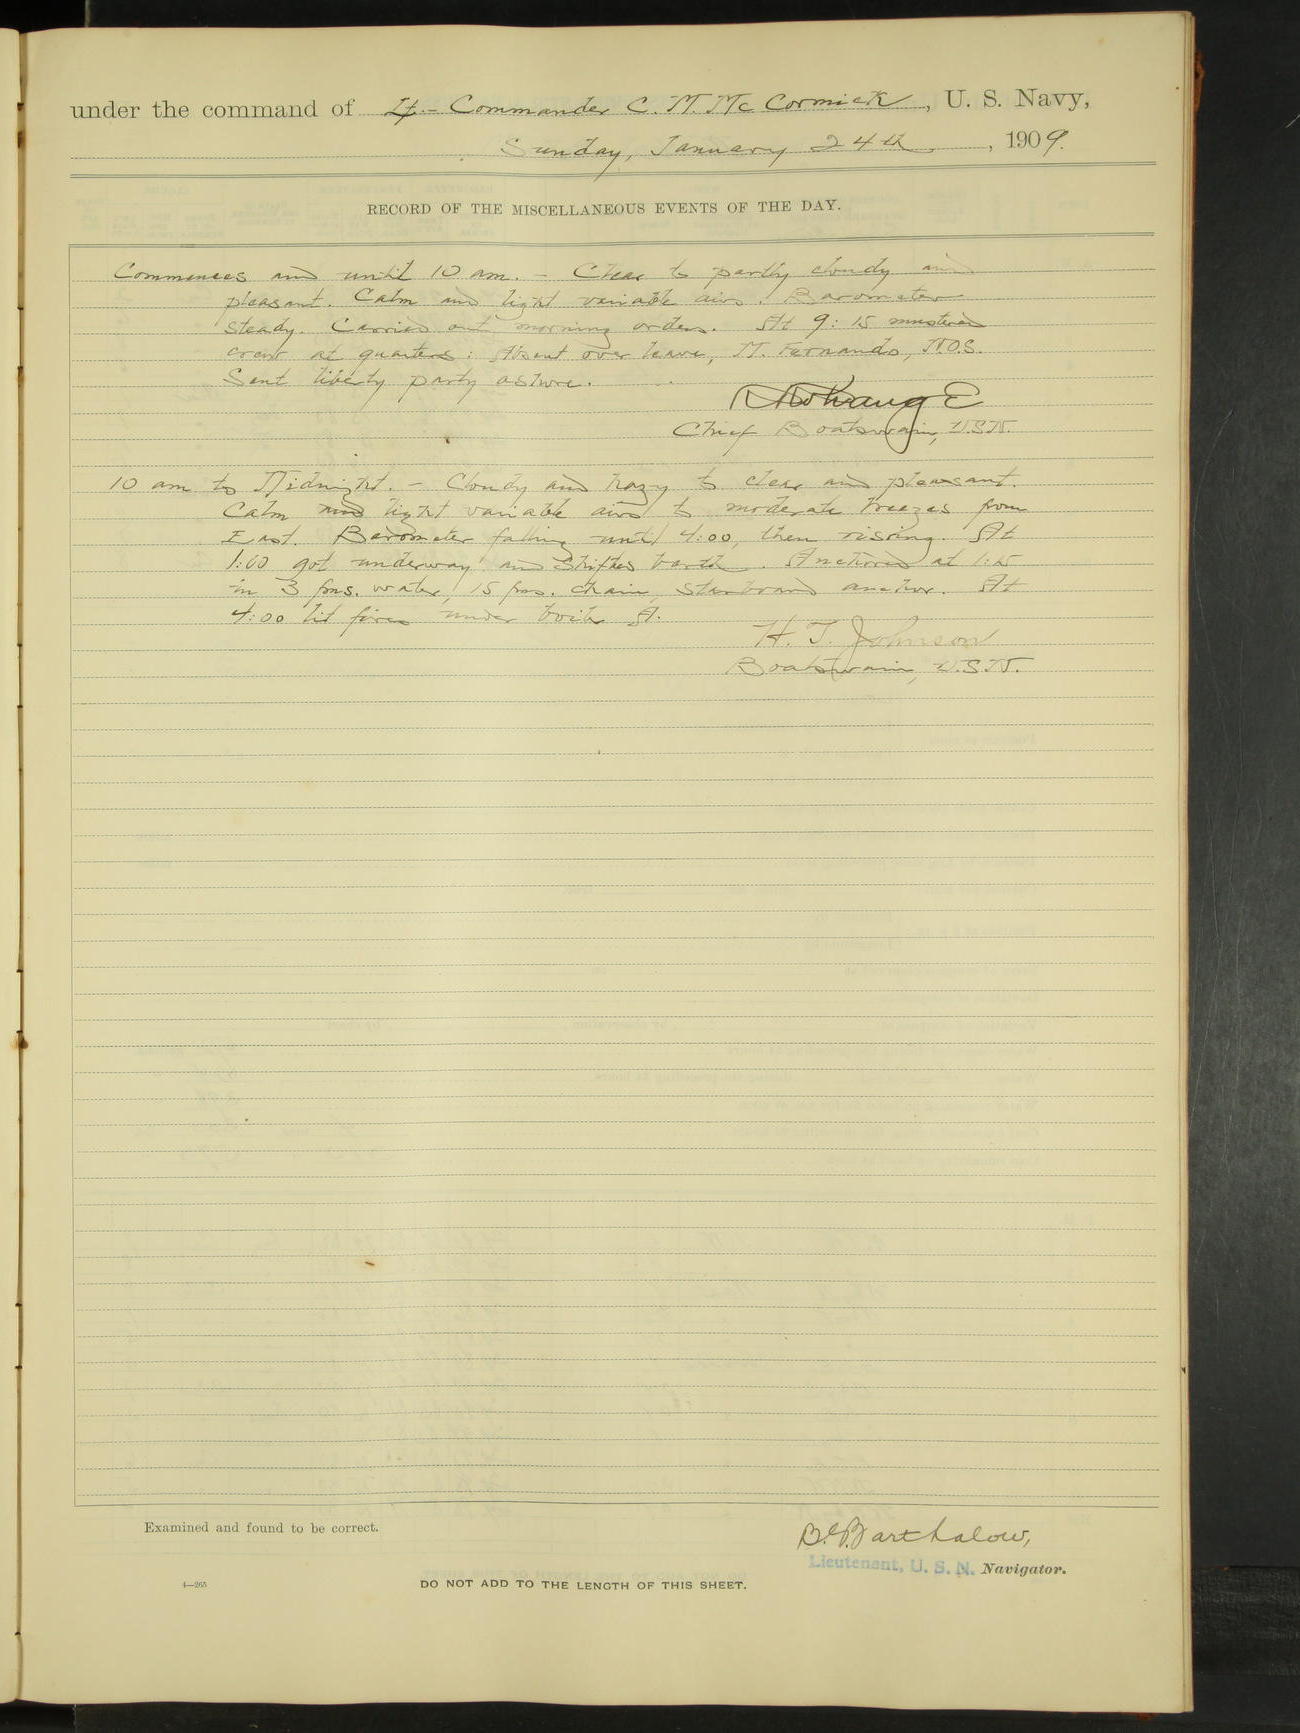 under the command of Lt-Commander C. M. McCormick, U. S. Navy,
Sunday, January 24th, 1909.
RECORD OF THE MISCELLANEOUS EVENTS OF THE DAY.
Commences and until 10 am. - Clear to partly cloudy and
pleasant. Calm and light variable airs. Barometer
steady. Carried out morning orders. At 9:15 mustered
crew at quarters: Absent over leave, M. Fernando,
Sent liberty party ashore.
Chief Boatswain, U.S.N.
10 am to Midnight. - Cloudy and hazy to clear and pleasant.
Calm and light variable airs to moderate breezes from
East. Barometer falling until 4:00, then rising. At
1:00 got underway and shifted berth. Anchored at 1:15
in 3 fms. water, 15 fms. chain, starboard anchor. At
4:00 lit fires under boiler A.
H. T. Johnson
Boatswain, U.S.N.
Examined and found to be correct.
Barthalow,
Lieutenant, U. S. N. Navigator.
4—265
DO NOT ADD TO THE LENGTH OF THIS SHEET.